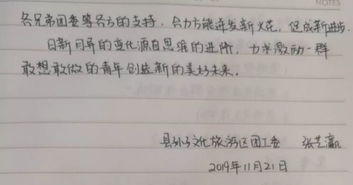 各兄弟团委等各方的支持，合力方能迸发新火花，促成新进步。
日新月异的变化源自思维的进阶，力求激励一群
敢想敢做的青年创造新的美好未来。
县孙子文化旅游区团工委 张艺瀛
2019年11月21日